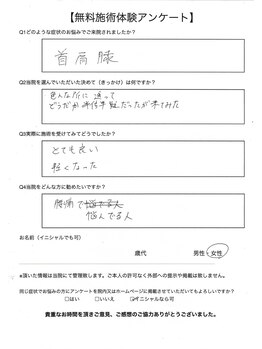 【無料施術体験アンケート】
Q1どのような症状のお悩みでご来院されましたか？
首肩膝
Q2当院を選んでいただいた決めて（きっかけ）は何ですか？
色んな所に通って
どうだか半信半疑だったが来てみた
Q3実際に施術を受けてみてどうでしたか？
とても良い
軽くなった
Q4当院をどんな方に勧めたいですか？
腰痛で悩てる人
悩んでる人
お名前（イニシャルでも可）
歳代 男性・女性
※頂いた情報は当院にて管理致します。ご本人の許可なく外部への提示や掲載は致しません。
同じ症状でお悩みの方にアンケートを院内又はホームページに掲載させていただいてもよろしいですか？
□はい □いいえ ☑イニシャルなら可
貴重なお時間を頂きご意見、ご感想のご協力ありがとうございました。